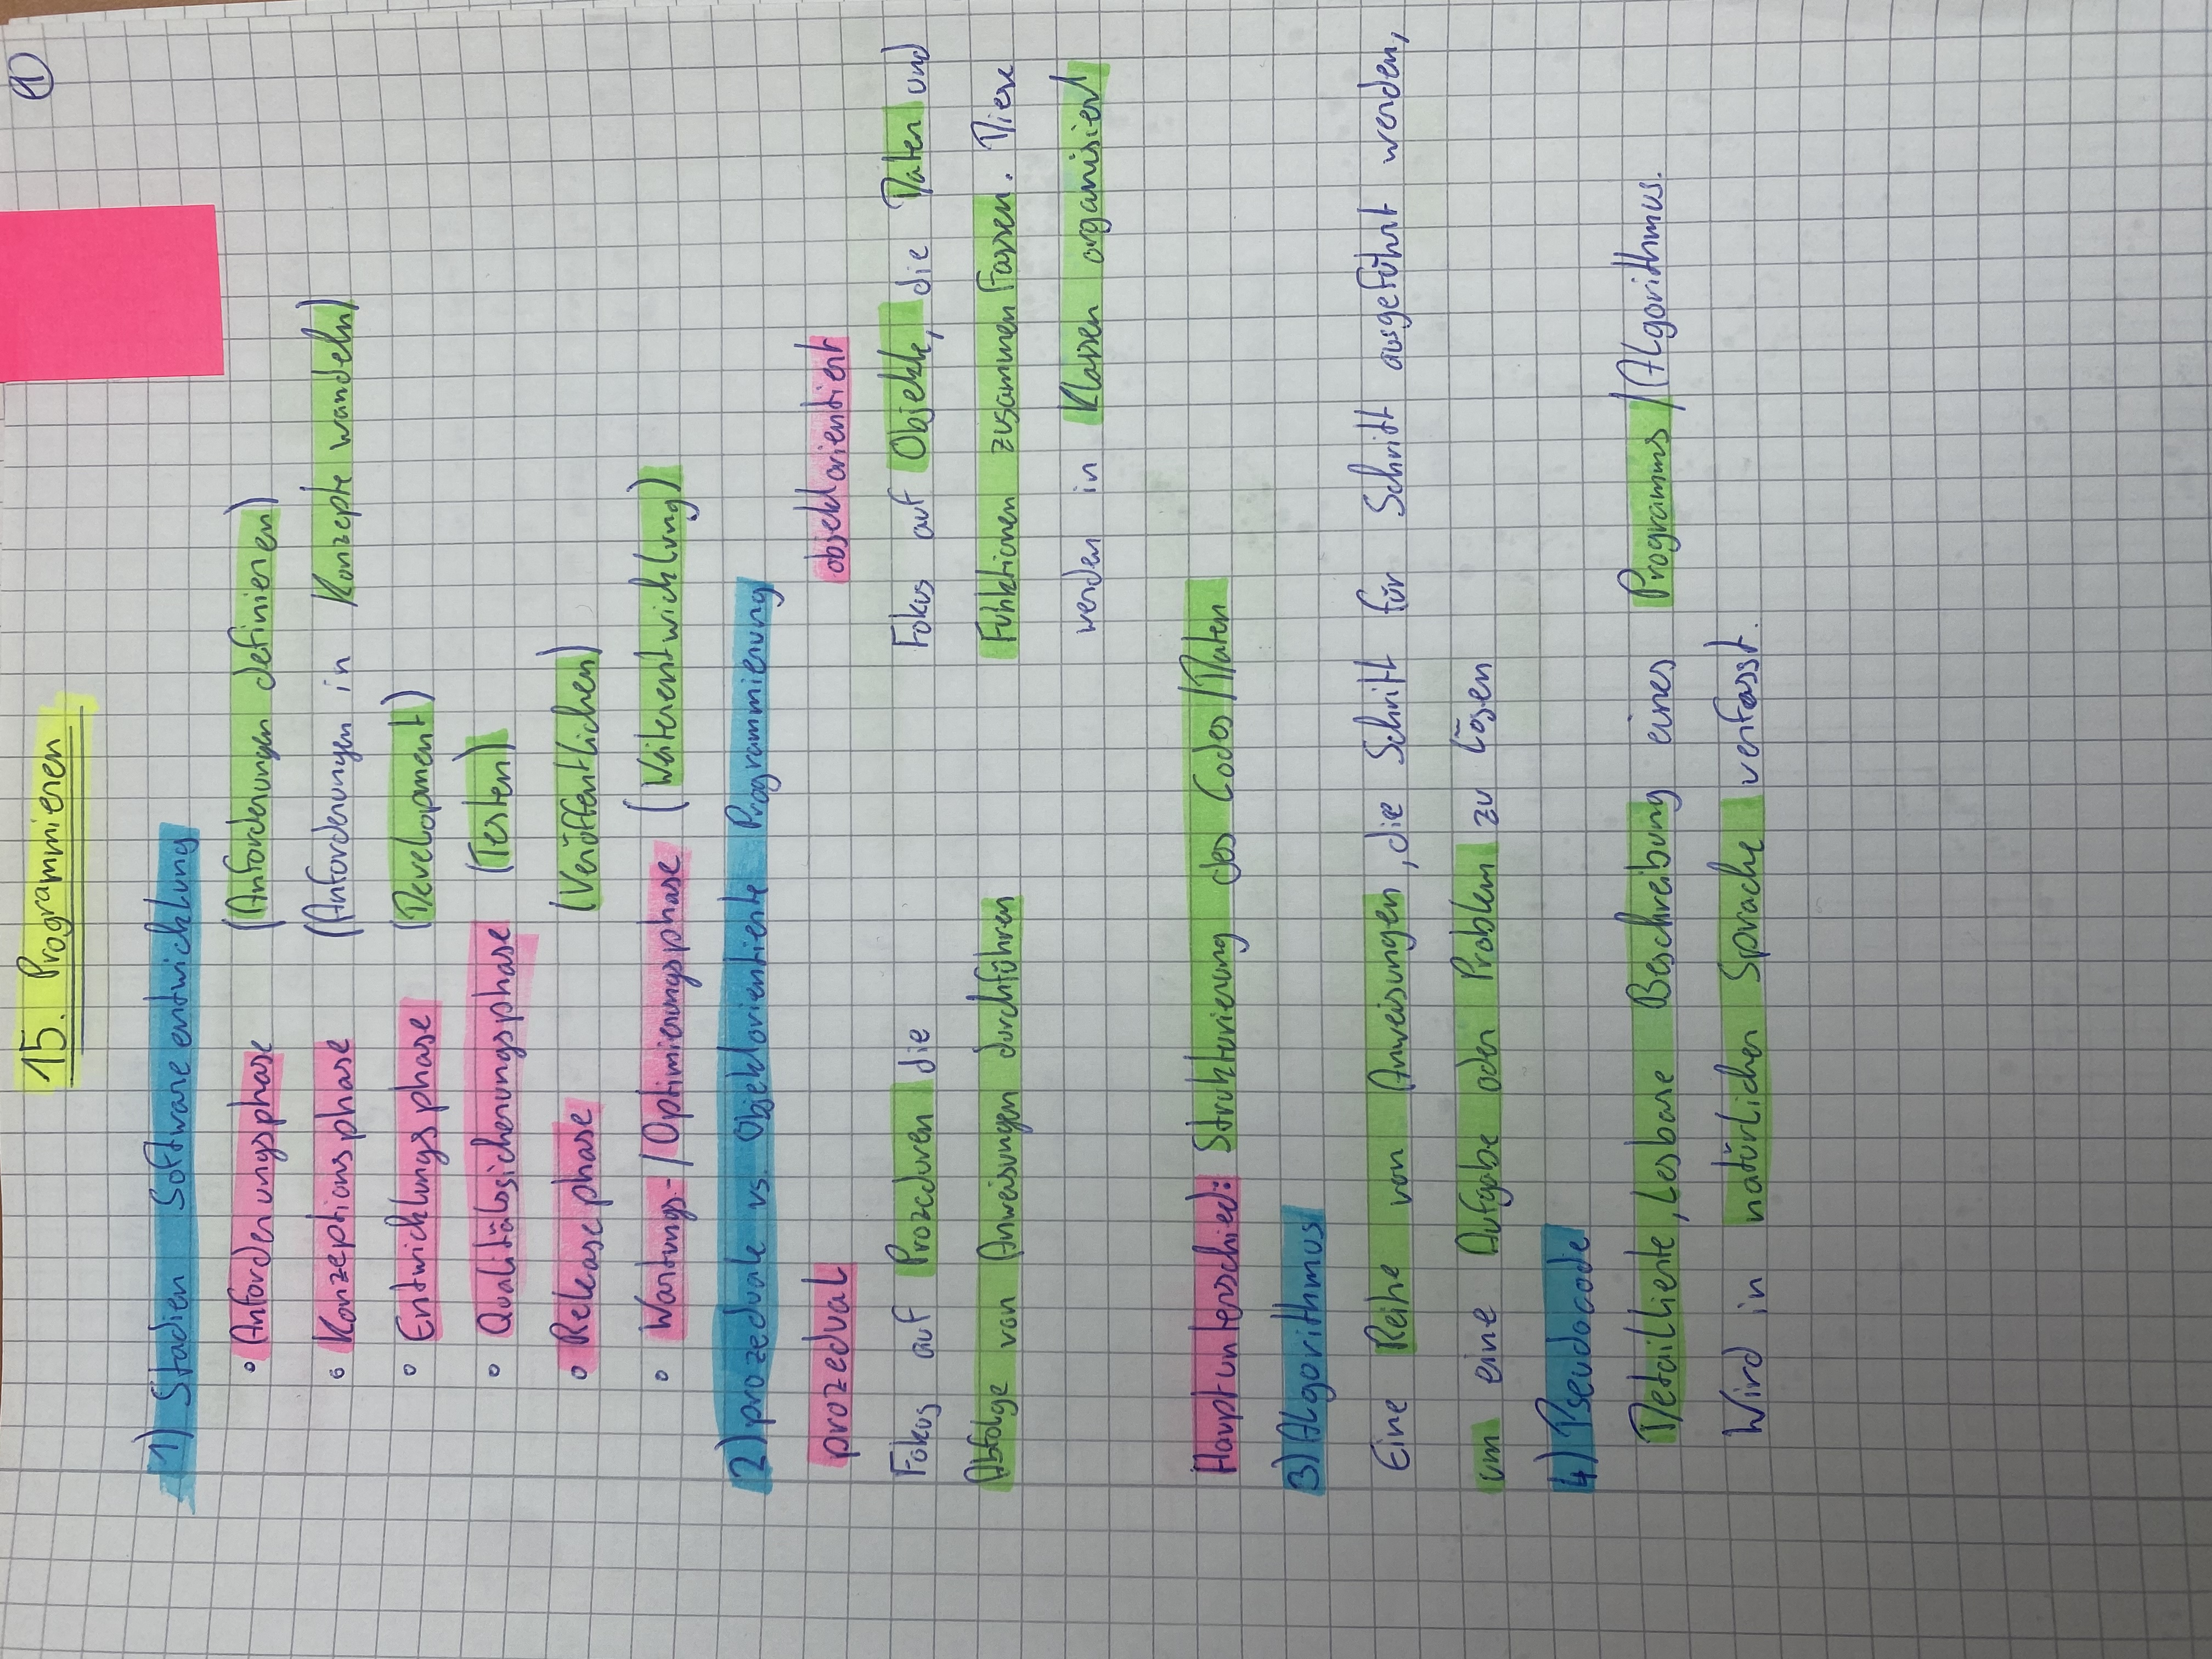 15. Programmieren
1
1) Stadien Softwareentwicklung
° Anforderungsphase (Anforderungen definieren)
° Konzeptionsphase (Anforderungen in Konzepte wandeln)
° Entwicklungsphase (Development)
° Qualitätssicherungsphase (Testen)
° Releasephase (Veröffentlichen)
° Wartungs-/Optimierungsphase (Weiterentwicklung)
2) prozeduale vs. Objektorientierte Programmierung
prozedual objektorientiert
Fokus auf Prozeduren die Fokus auf Objekte, die Daten und
Abfolge von Anweisungen durchführen Funktionen zusammenfassen. Diese
werden in Klassen organisiert
Hauptunterschied: Strukturierung des Codes/Daten
3) Algorithmus
Eine Reihe von Anweisungen, die Schritt für Schritt ausgeführt werden,
um eine Aufgabe oder Problem zu lösen
4) Pseudocode
Detaillierte, Lesbare Beschreibung eines Programms/Algorithmus.
Wird in natürlicher Sprache verfasst.